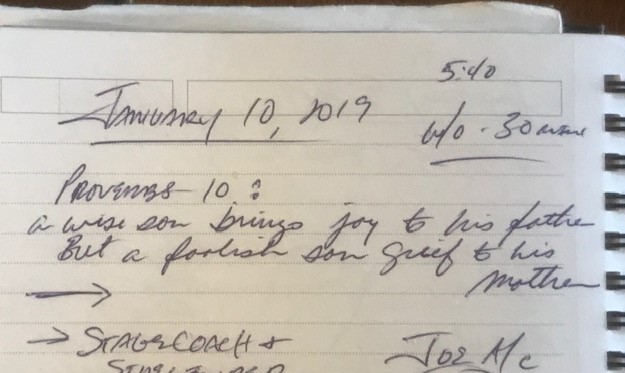 5:40
January 10, 2019
w/o - 30 min
Proverbs 10:
a wise son brings joy to his father
But a foolish son grief to his
mother
→
→ Stagecoach &
Joe Mc